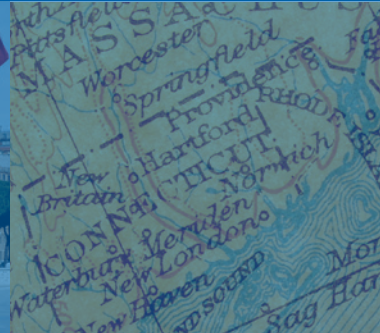 Pittsfield
MASSACHUS
Worcester
Springfield
Providence
RHODE ISLA
Hartford
New
Britain
CONNECTICUT
Norwich
Meriden
Waterbury
New London
New Haven
ND SOUND
Mon
Sag Har